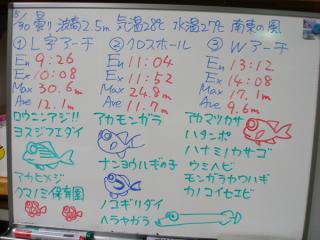 8/30 曇り 波高2.5m 気温28℃ 水温27℃ 南東の風
① L字アーチ
En 9:26
Ex 10:08
Max 30.6m
Ave 12.1m
ロウニンアジ!!
ヨスジフエダイ
アカヒメジ
クマノミ保育園
② クロスホール
En 11:04
Ex 11:52
Max 24.8m
Ave 11.7m
アカモンガラ
ナンヨウハギの子
ノコギリダイ
ヘラヤガラ
③ Wアーチ
En 13:12
Ex 14:08
Max 17.1m
Ave 9.6m
アカマツカサ
ハタンポ
ハナミノカサゴ
ウミヘビ
モンガラカワハギ
カノコイセエビ